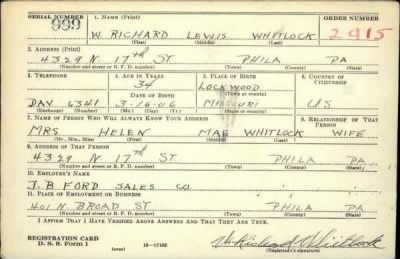 SERIAL NUMBER 1. NAME (Print) ORDER NUMBER
999 W. RICHARD LEWIS WHITLOCK 2915
(First) (Middle) (Last)
2. ADDRESS (Print)
4329 N 17th ST PHILA PA
(Number and street or R. F. D. number) (Town) (County) (State)
3. TELEPHONE 4. AGE IN YEARS 5. PLACE OF BIRTH 6. COUNTRY OF CITIZENSHIP
34 LOCKWOOD
DATE OF BIRTH
DAV 6341 3-16-06 MISSOURI US
(Exchange) (Number) (Mo.) (Day) (Yr.) (State or country)
7. NAME OF PERSON WHO WILL ALWAYS KNOW YOUR ADDRESS 8. RELATIONSHIP OF THAT PERSON
MRS HELEN MAE WHITLOCK WIFE
(Mr., Mrs., Miss) (First) (Middle) (Last)
9. ADDRESS OF THAT PERSON
4329 N 17th ST PHILA PA
(Number and street or R. F. D. number) (Town) (County) (State)
10. EMPLOYER'S NAME
J. B. FORD SALES CO
11. PLACE OF EMPLOYMENT OR BUSINESS
401 N. BROAD ST PHILA PA
(Number and street or R. F. D. number) (Town) (County) (State)
I AFFIRM THAT I HAVE VERIFIED ABOVE ANSWERS AND THAT THEY ARE TRUE.
REGISTRATION CARD
D. S. S. Form 1 (over) 16-17105 W. Richard L. Whitlock
(Registrant's signature)